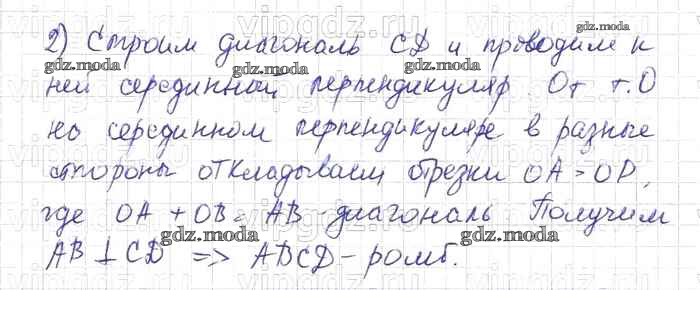 2) Строим диагональ CD и проводим к
ней серединный перпендикуляр. От т. O
на серединном перпендикуляре в разные
стороны откладываем отрезки OA = OD,
где OA + OB = AB - диагональ Получим
AB ⊥ CD => ABCD - ромб.
gdz.moda
gdz.moda
gdz.moda
gdz.moda
gdz.moda
gdz.moda
gdz.moda
gdz.moda
vipgdz.ru